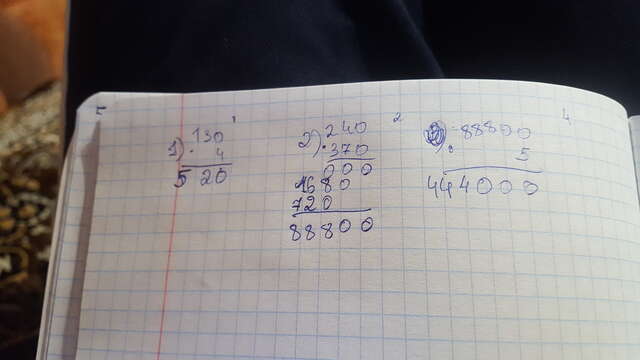 1) 130
· 4
520
2) 240
· 370
000
1680
720
88800
88800
· 5
444000